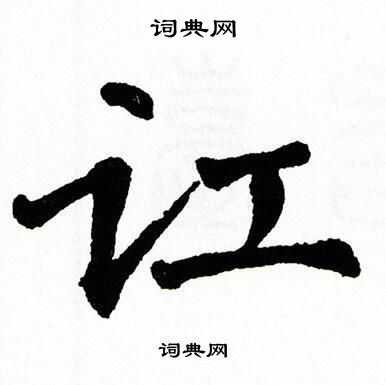 词典网
讧
词典网